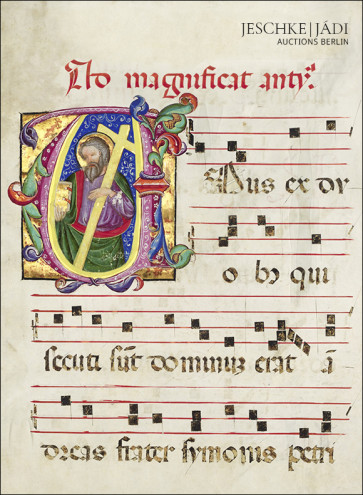 JESCHKE|JÁDI
AUCTIONS BERLIN
Ad magnificat antỹ.
UNus ex du
o bꝫ qui
secuti sūt dominuꝫ erat ā
dreas frater symonis petri